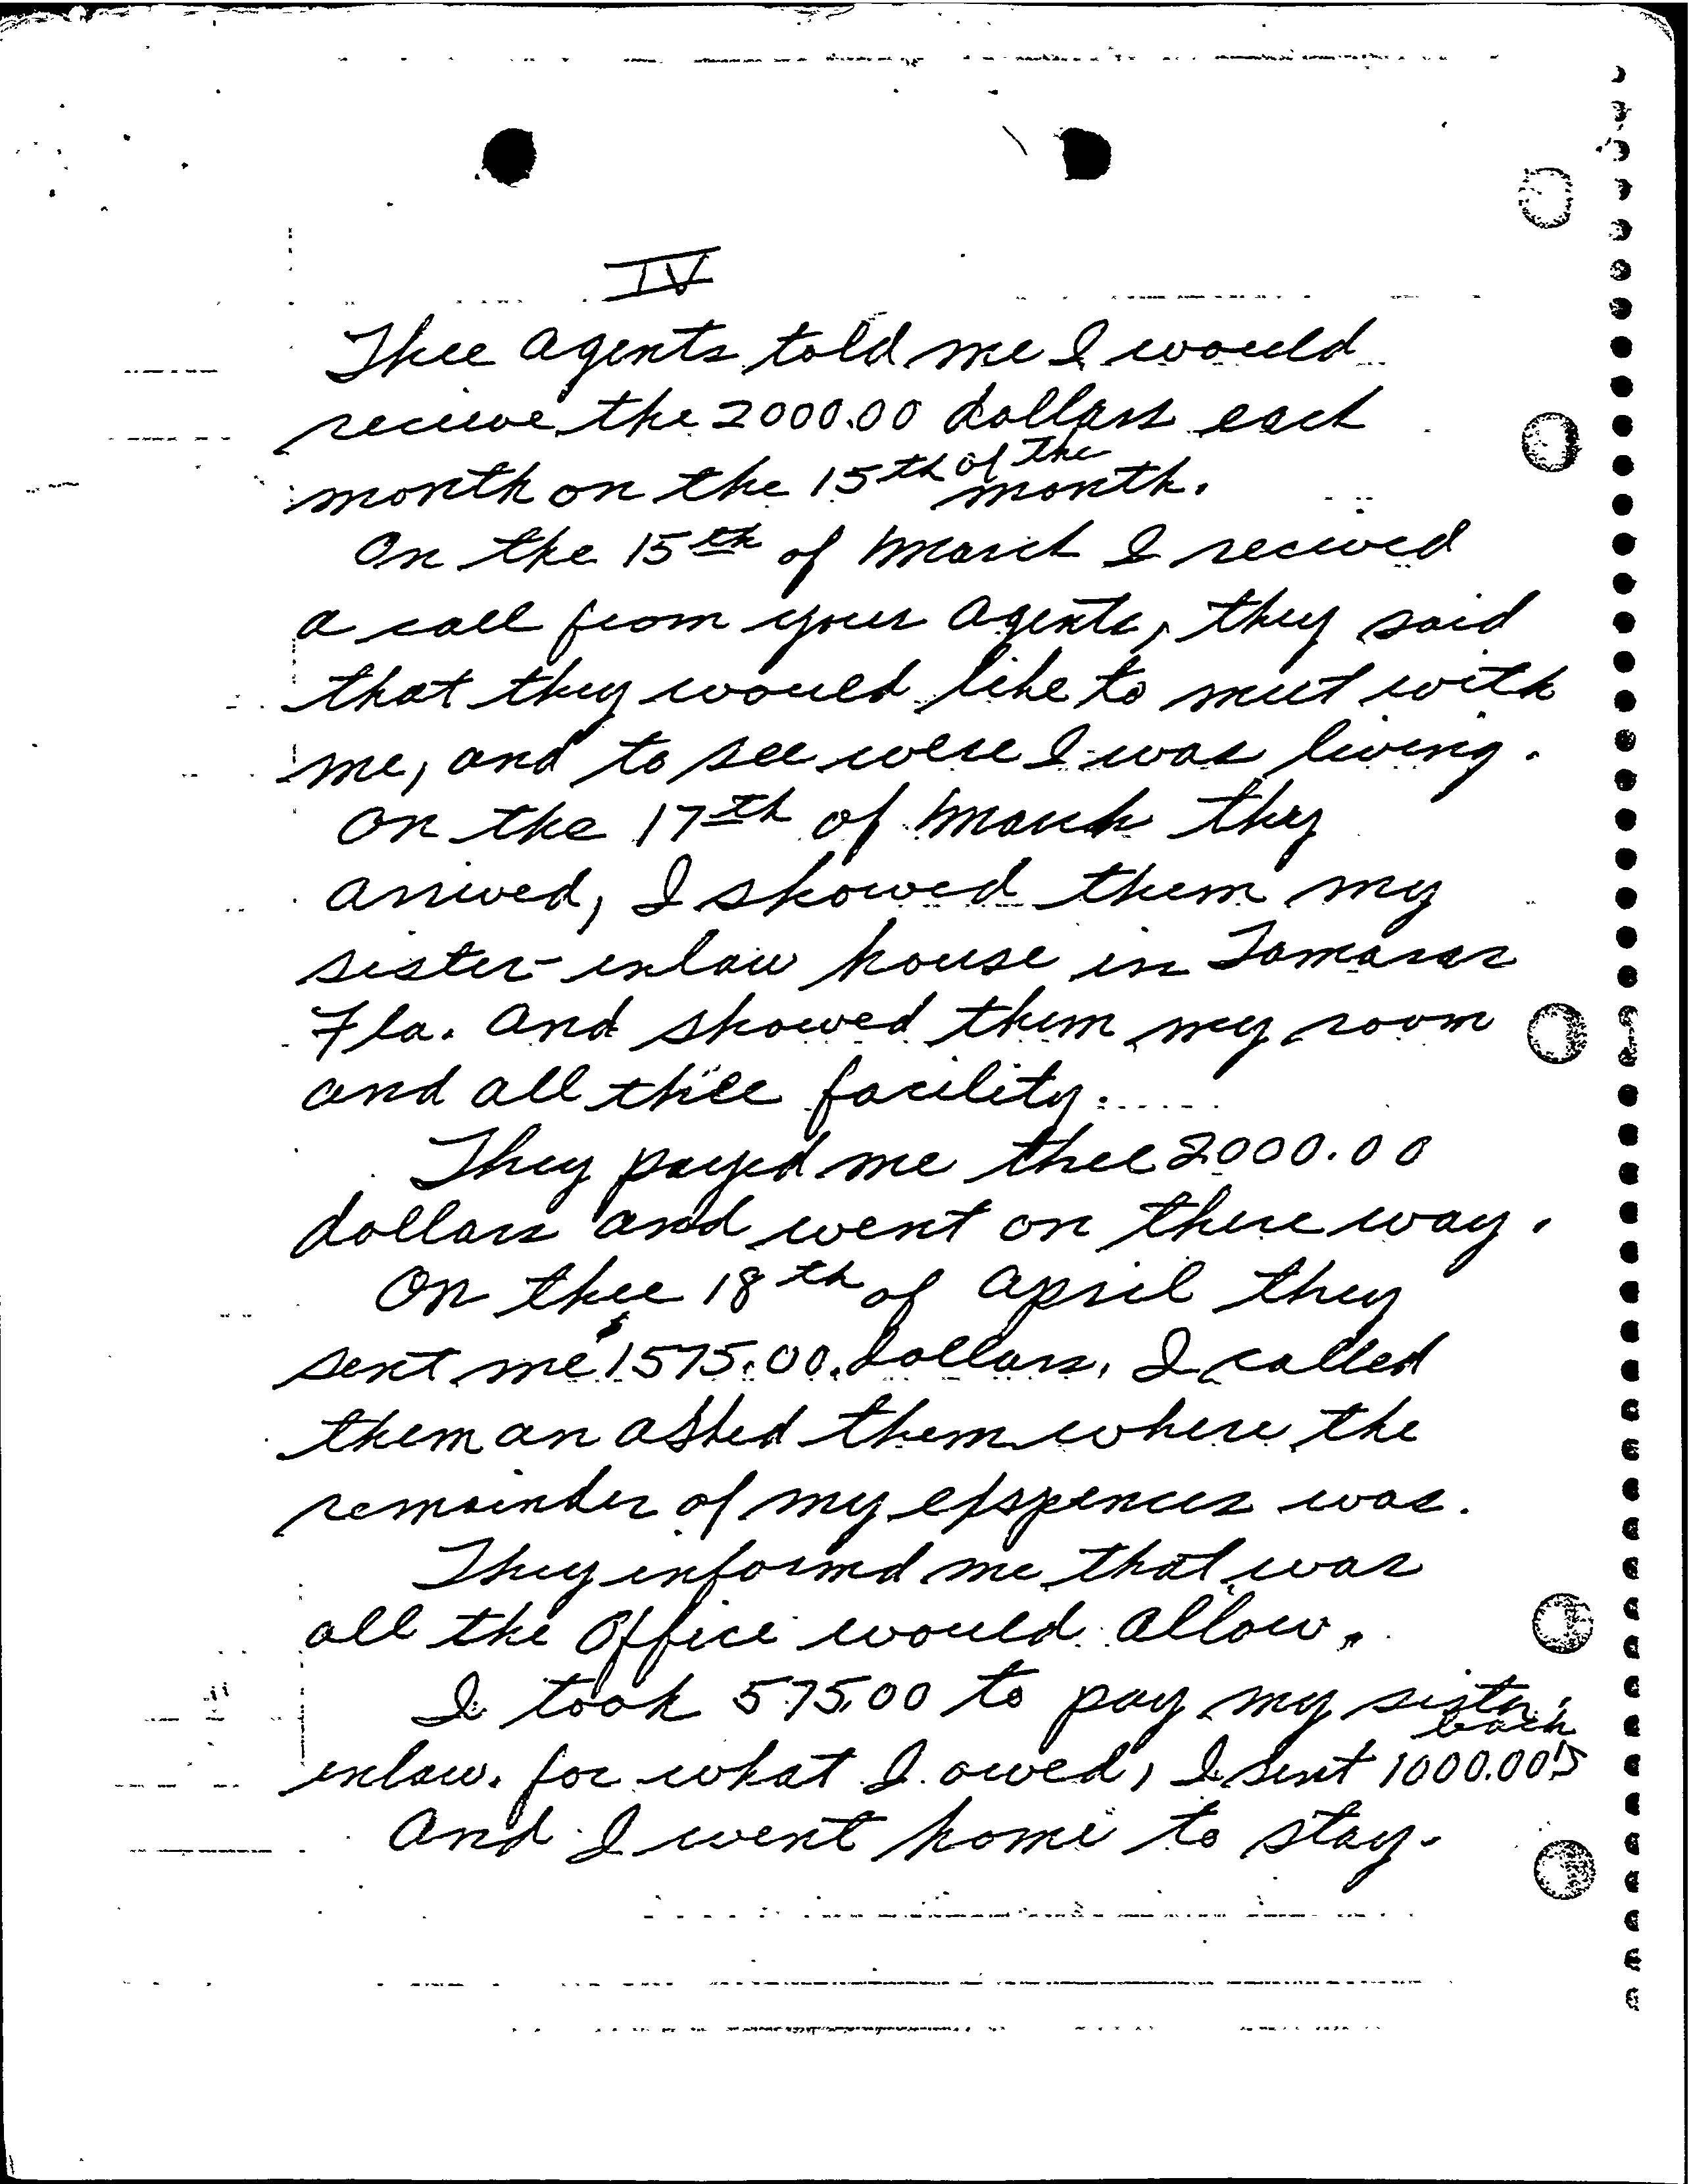 IV
Thee agents told me I would
recieve the 2000.00 dollars each
month on the 15th of the month.
On the 15th of March I recived
a call from your agents, they said
that they would like to meet with
me, and to see were I was living.
On the 17th of March they
arrived, I showed them my
sister-inlaw house in Tamarac
Fla. And showed them my room
and all thee facility.
They payed me thee 2000.00
dollars and went on there way.
On thee 18th of April they
sent me $1575.00 dollars, I called
them an asked them where the
remainder of my expences was.
They informd me that was
all the Office would allow.
I took 575.00 to pay my sister
inlaw. for what I owed, I sent 1000.00 back
And I went home to stay.